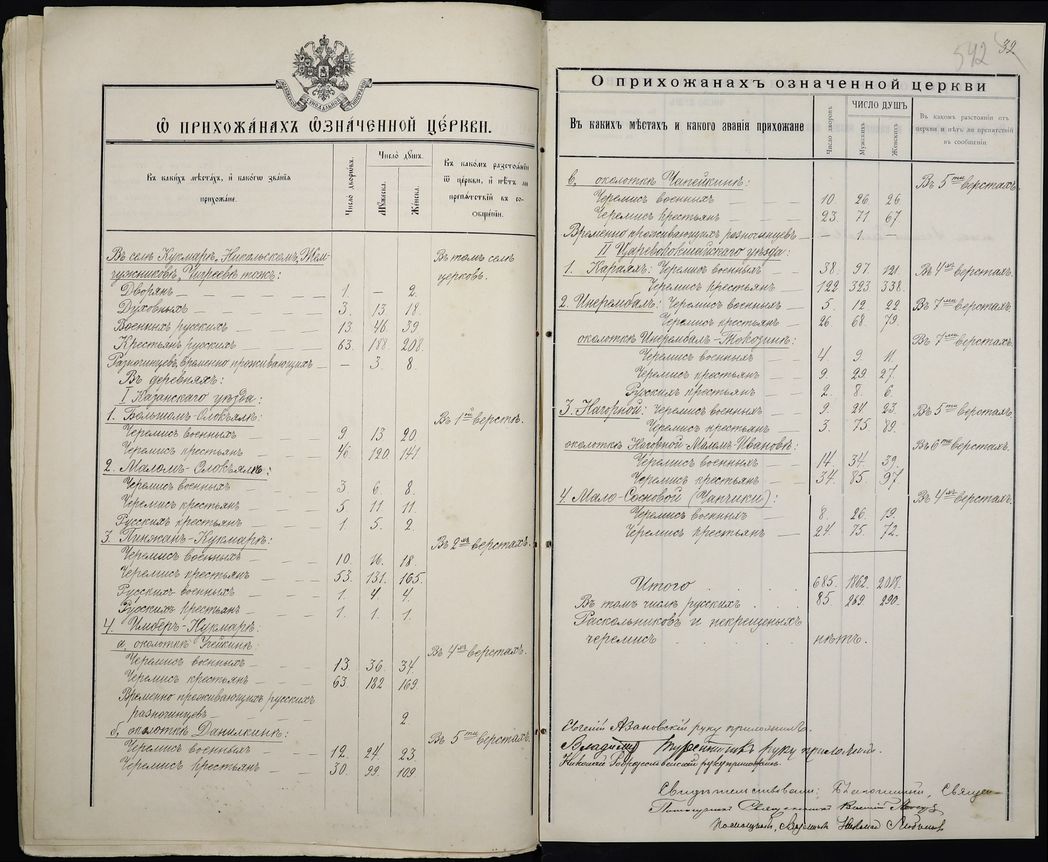 Ѡ ПРИХОЖА́НАХЪ Ѡ҆ЗНА́ЧЕННОЙ ЦЕ́РКВИ.
Въ какихъ мѣстахъ, и какогѡ званія прихожане.
Число дворѡвъ.
Число дꙋшъ.
Мꙋжеска.
Женска.
Въ какомъ разстоѧніи ѿ церкви, и нѣтъ ли препѧтствій въ сообщеніи.
Въ селѣ Кукмарѣ, Никольскомъ,
Въ томъ селѣ церковь.
Дворянъ — 1. — 2.
Духовныхъ — 3. 13. 18.
Военныхъ русскихъ — 13. 46. 39
Крестьянъ русскихъ — 63. 188. 208.
Разночинцевъ, временно проживающихъ — — 3. 8.
Въ деревняхъ:
I Казанскаго уѣзда:
1. Большомъ-
Въ 1й верстѣ.
Черемисъ военныхъ — 9 13 20
Черемисъ крестьянъ — 46. 120 141
2. Маломъ-
Черемисъ военныхъ — 3. 6. 8.
Черемисъ крестьянъ — 5 11 11
Русскихъ крестьянъ — 1 5. 2.
3. Пинжан-Кукмарѣ:
Въ 2хъ верстахъ.
Черемисъ военныхъ — 10. 16. 18
Черемисъ крестьянъ — 53. 131. 165.
Русскихъ военныхъ — 1. 4 4
Русскихъ крестьянъ — 1. 1. 1.
4. Имбер-Кукмарѣ:
а, околоткѣ
Въ 4хъ верстахъ.
Черемисъ военныхъ — 13. 36. 34
Черемисъ крестьянъ — 63. 182 169.
Временно проживающихъ русскихъ
разночинцевъ — — 2
б, околоткѣ Данилкинѣ:
Въ 5ти верстахъ.
Черемисъ военныхъ — 12. 24. 23.
Черемисъ крестьянъ — 30. 99 109
542 32
О прихожанахъ означенной церкви
Въ какихъ мѣстахъ и какого званія прихожане
Число дворовъ
ЧИСЛО ДУШЪ
Мужскихъ
Женскихъ
Въ какомъ разстояніи отъ церкви и нѣтъ ли препятствій въ сообщеніи
в, околоткѣ Чапейкинѣ:
Въ 5ти верстахъ.
Черемисъ военныхъ — 10 26 26
Черемисъ крестьянъ — 23. 71 67
Временно проживающихъ разночинцевъ — — 1. —
II Царевококшайскаго уѣзда:
1. Караяхъ: Черемисъ военныхъ — 38. 97 121.
Въ 4хъ верстахъ.
Черемисъ крестьянъ — 122 323 338.
2. Инерембалъ: Черемисъ военныхъ — 5. 12 22.
Въ 7ми верстахъ.
Черемисъ крестьянъ — 26 68. 79.
околоткѣ Инерембал-
Въ 7ми верстахъ.
Черемисъ военныхъ — 4. 9 11.
Черемисъ крестьянъ — 9. 29 27.
Русскихъ крестьянъ — 2. 8. 6.
3. Нагорной: Черемисъ военныхъ — 9. 24 23.
Въ 5ти верстахъ.
Черемисъ крестьянъ — 3. 75. 89.
околоткѣ Нагорной Маломъ-Ивановкѣ:
Въ 6ти верстахъ.
Черемисъ военныхъ — 14. 34 39.
Черемисъ крестьянъ — 34. 85. 97.
4. Мало-Сосновой (Чапчики):
Въ 4хъ верстахъ.
Черемисъ военныхъ — 8. 26 29.
Черемисъ крестьянъ — 24. 75. 72.
Итого 685. 1862. 2018.
Въ томъ числѣ русскихъ 85. 269 290.
Раскольниковъ и некрещеныхъ
черемисъ нѣтъ.
Евгеній Азановскій руку приложилъ.
Владимiръ руку приложилъ.
Николай руку приложилъ.
Свидѣтельствовали: Благочинный, Священ-
Помощникъ Священникъ
Николай